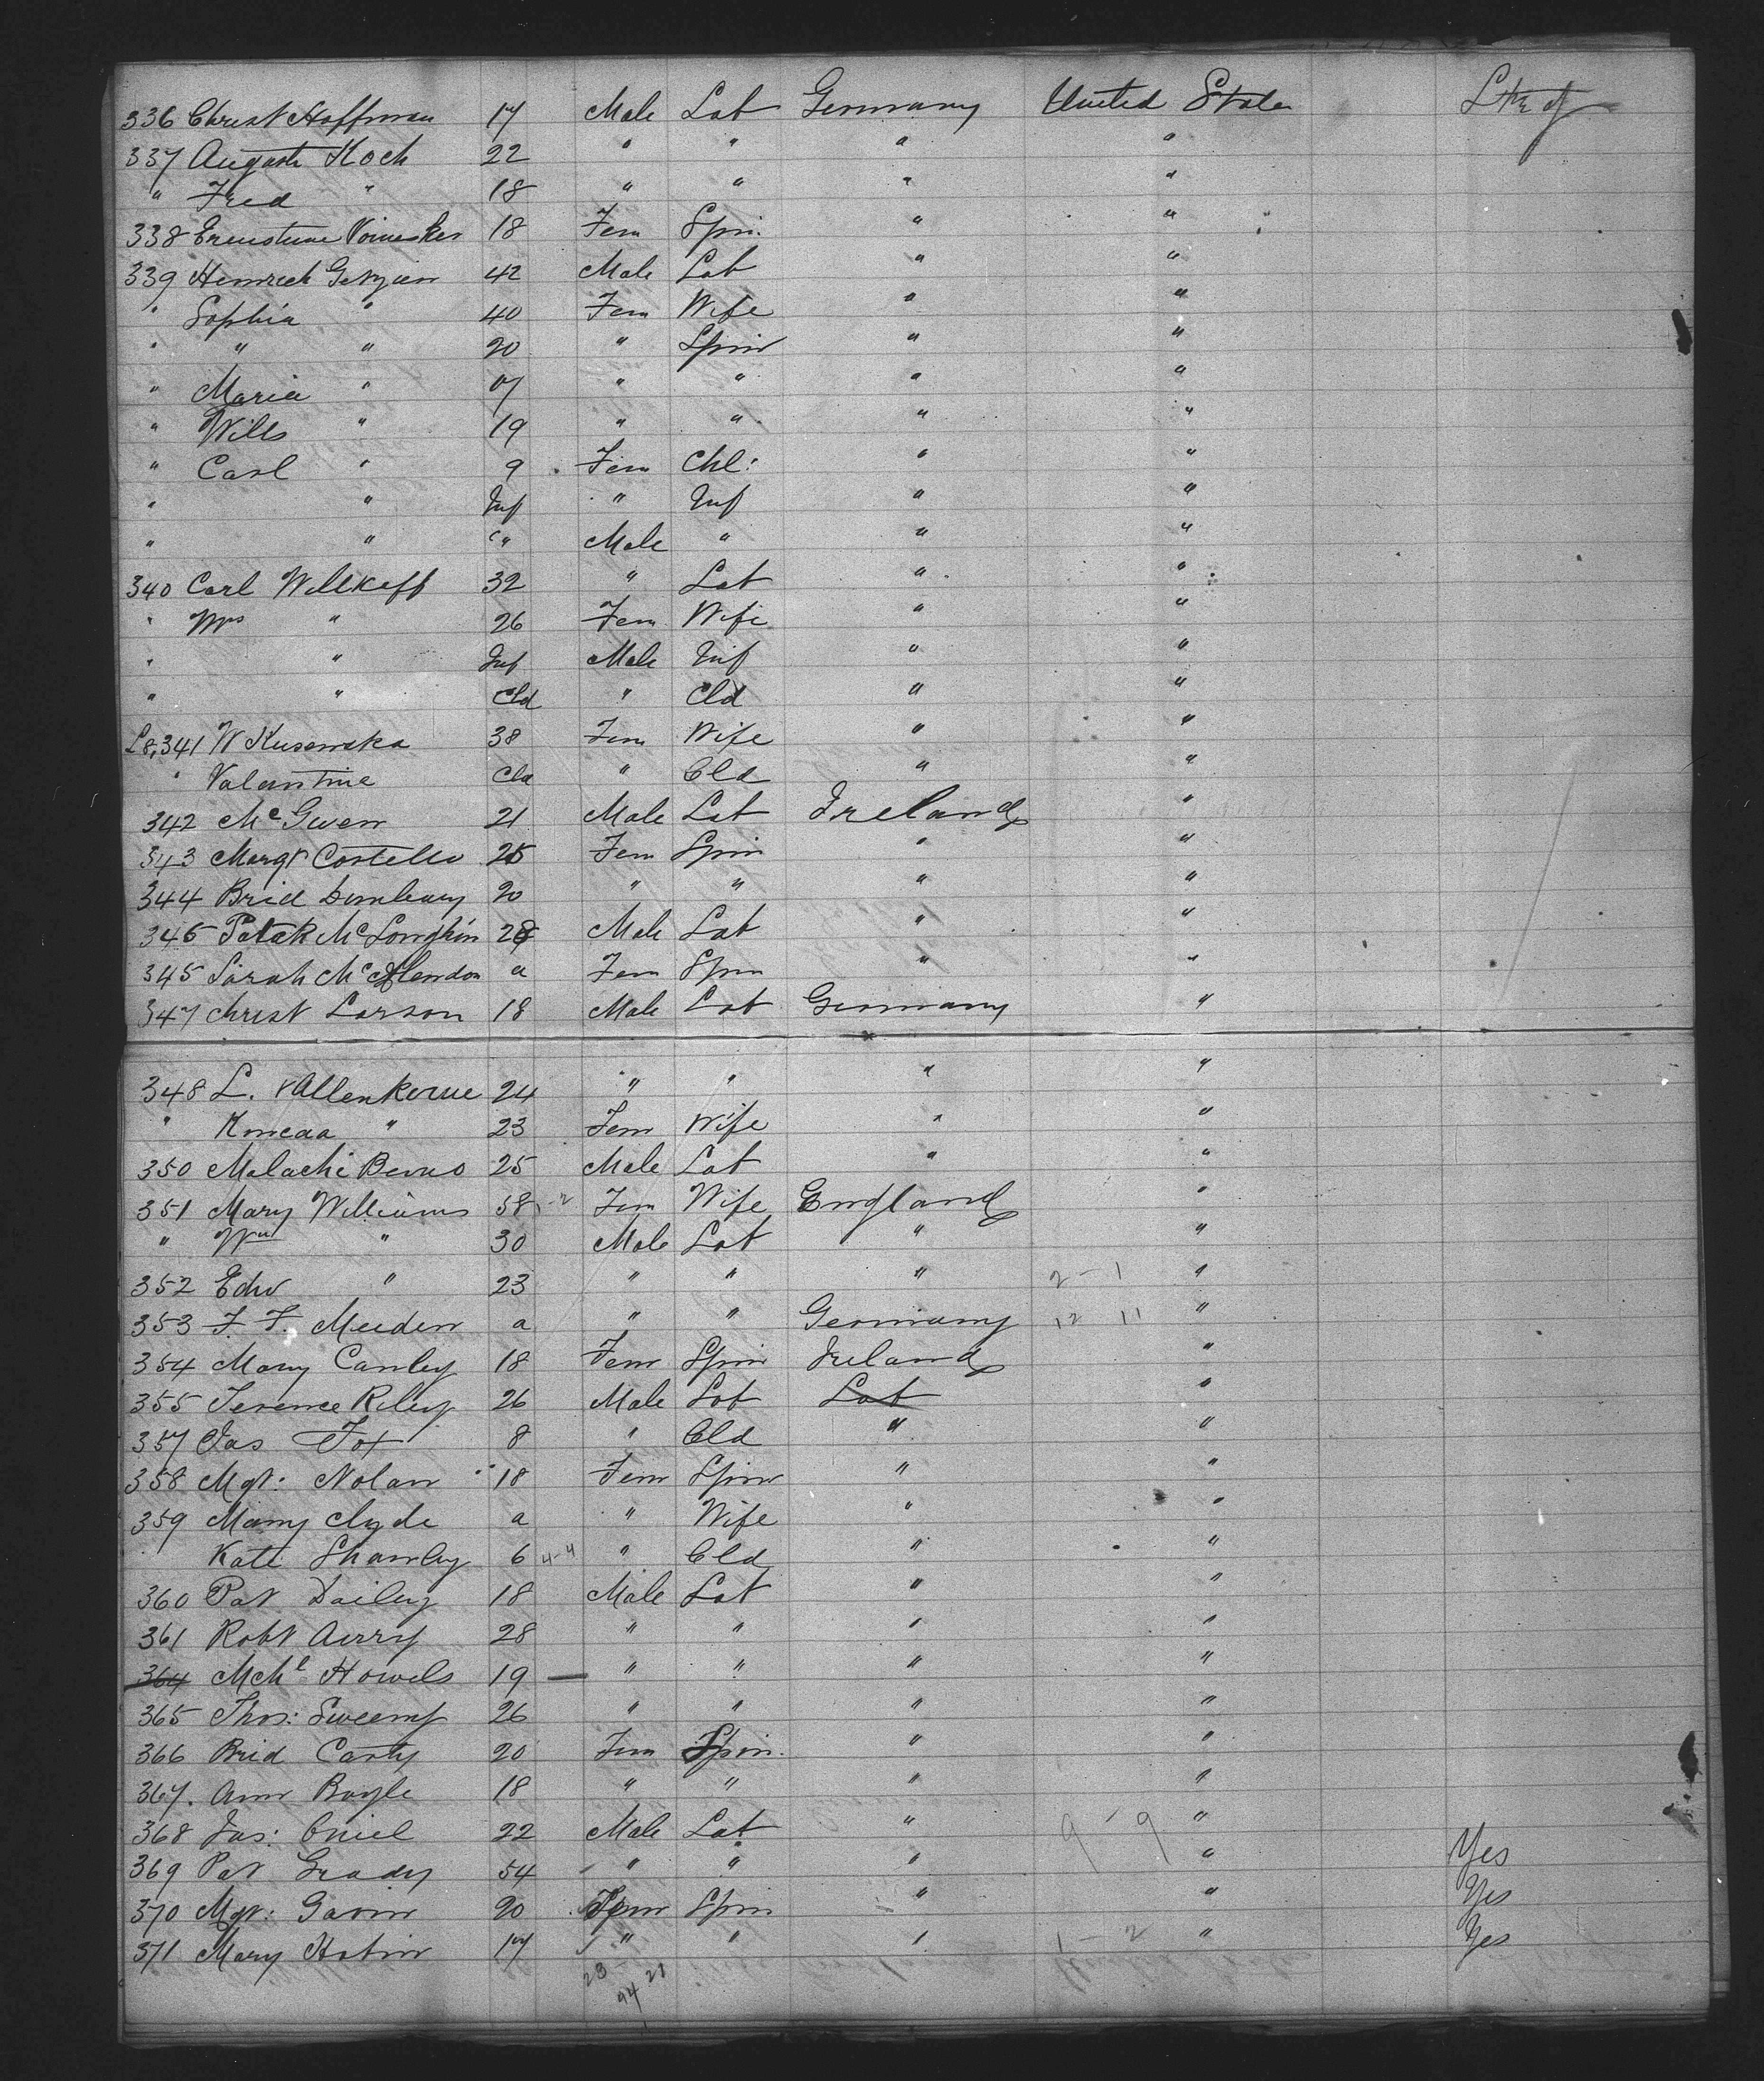 336 Christ Hoffman 17 Male Lab Germany United States
337 August Koch 22 " " " "
" Fred " 18 " " " "
338 18 Fem Spin. " "
339 Heinrich 42 Male Lab " "
" Sophia " 40 Fem Wife " "
" " " 20 " Spin " "
" Maria " 07 " " " "
" Wills " 19 " " " "
" Carl " 9 Fem Chl: " "
" " Inf " Inf " "
" " " Male " " "
340 Carl Willkeff 32 " Lab " "
" Mrs " 26 Fem Wife " "
" " Inf Male Inf " "
" " Cld " Cld " "
341 W Kusenska 38 Fem Wife " "
" Valantine Cld " Cld " "
342 McGwen 21 Male Lab Ireland "
343 Margt Costello 25 Fem Spin " "
344 Brid 20 " " " "
346 Patak McLoughin 28 Male Lab " "
345 Sarah a Fem Spin " "
347 Christ Larson 18 Male Lab Germany "
348 L. 24 " " " "
" " 23 Fem Wife " "
350 Malachi 25 Male Lab " "
351 Mary Williams 58 Fem Wife England "
" Wm " 30 Male Lab " "
352 Edw " 23 " " " 2-1 "
353 F. F. Meeden a " " Germany 12 11 "
354 Mary Canley 18 Fem Spin Ireland "
355 Terence Riley 26 Male Lab Lab "
357 Jas Fox 8 " Cld " "
358 Mgt: Nolan 18 Fem Spin " "
359 Mamy Clyde a " Wife " "
Kate Shanley 6 4-4 " Cld " "
360 Pat Dailey 18 Male Lab " "
361 Robt Aurry 28 " " " "
364 Mchl Howels 19 — " " " "
365 Thos: Sweeny 26 " " " "
366 Brid Carty 20 Fem Spin. " "
367. Ann Boyle 18 " " " "
368 Jas: Oniel 22 Male Lab " 9-9 "
369 Pat Grady 54 " " " " Yes
370 Mgt: Gavin 20 Fem Spin " " Yes
371 Mary Hobin 17 " " " 1-2 " Yes
23 21
94